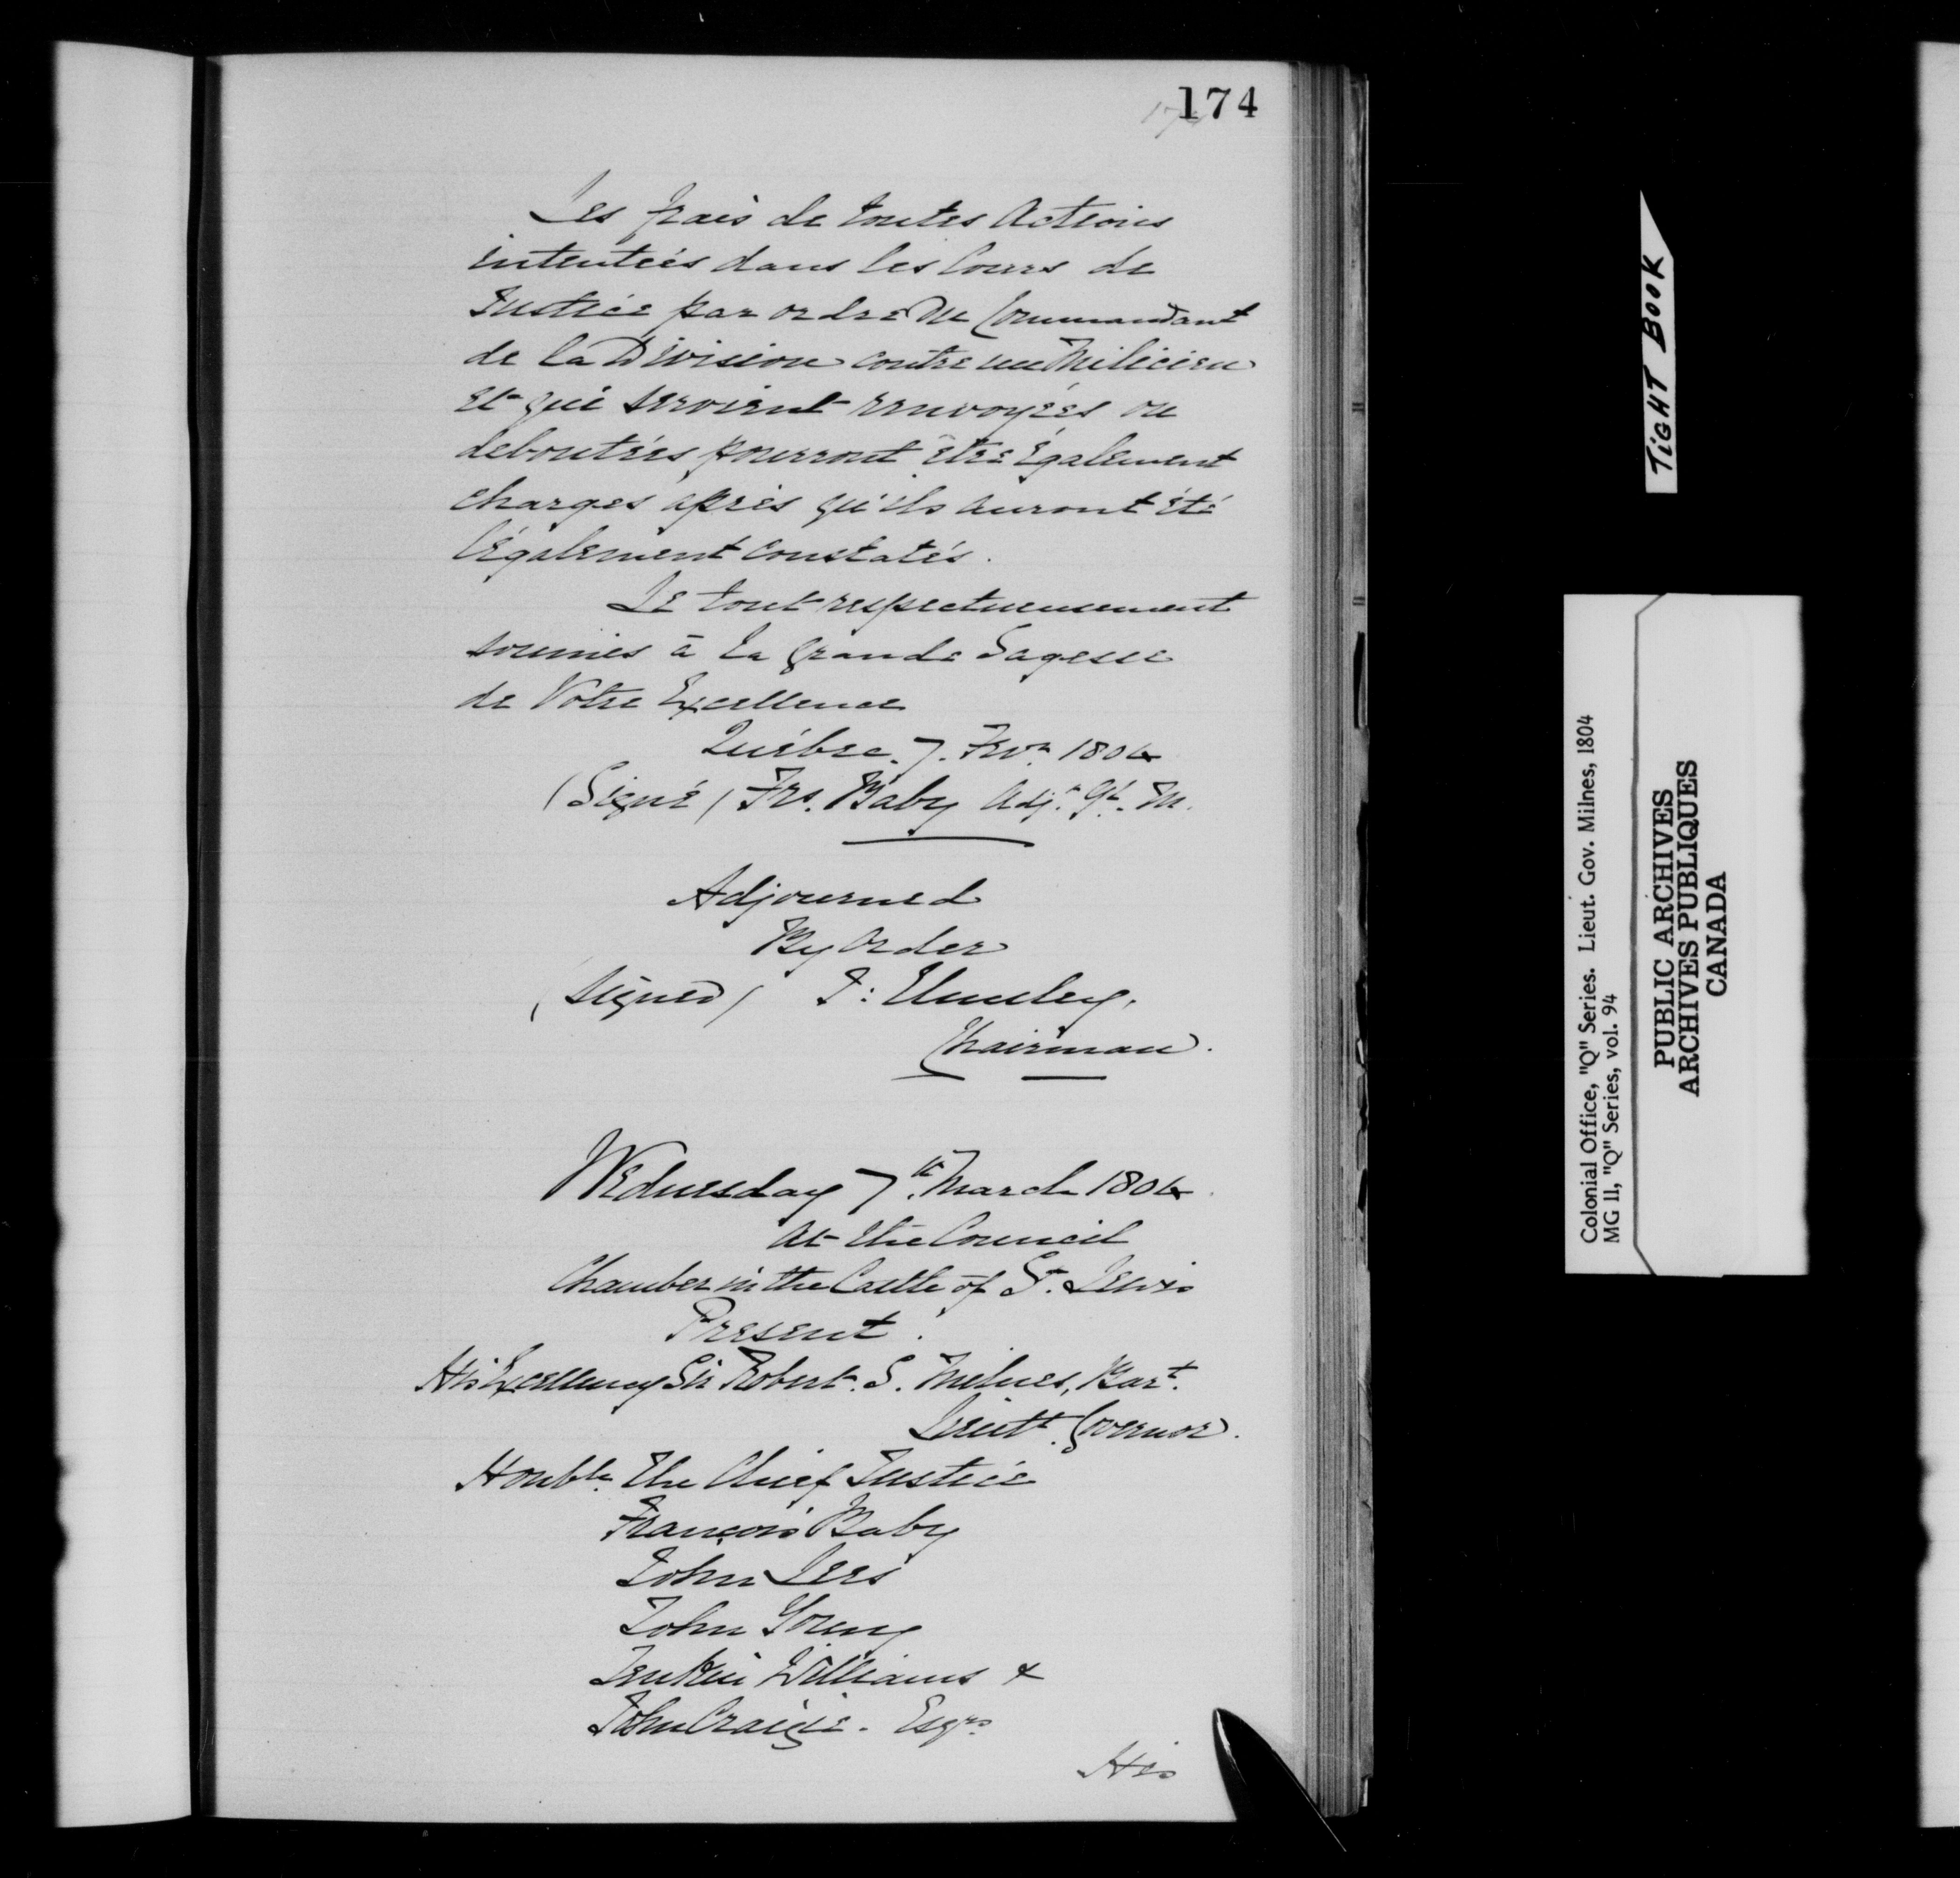 174
174
Les frais de toutes Actions
intentées dans les Cours de
Justice par ordre du Commandant
de la Division contre un Milicien
et qui seroient renvoyées ou
deboutées pourront être également
charges après qu'ils auront été
légalement constatés.
Le tout respectueusement
soumis à la grande Sagesse
de Votre Excellence
Québec. 7. Fevr. 1804
(Signé) Frs. Baby Adj.t Gl. M.
Adjourned
By Order
(signed) J: Elmsley,
Chairman.
Wednesday 7th. March 1804.
At the Council
Chamber in the Castle of St. Lewis
Present.
His Excellency Sir Robert. S. Milnes, Bart.
Lieutt. Governor.
Honble. The Chief Justice
François Baby
John Lees
John Young
Jenkin Williams &
John Craigie. Esqrs.
His
TIGHT BOOK
Colonial Office, "Q" Series. Lieut. Gov. Milnes, 1804
MG 11, "Q" Series, vol. 94
PUBLIC ARCHIVES
ARCHIVES PUBLIQUES
CANADA